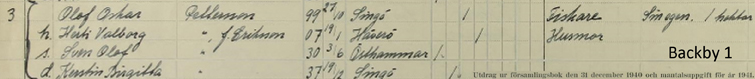 3 Olof Oskar Pettersson 99 27/10 Singö 1 Fiskare Sin egen. 1 hektar
h. Herti Valborg " f. Erikson 07 19/1 Häverö 1 Husmor
s. Sven Olof " 30 3/6 Östhammar 1. Backby 1
d. Kerstin Birgitta " 37 19/12 Singö 1. Utdrag ur församlingsbok den 31 december 1940 och mantalsuppgift för år 194